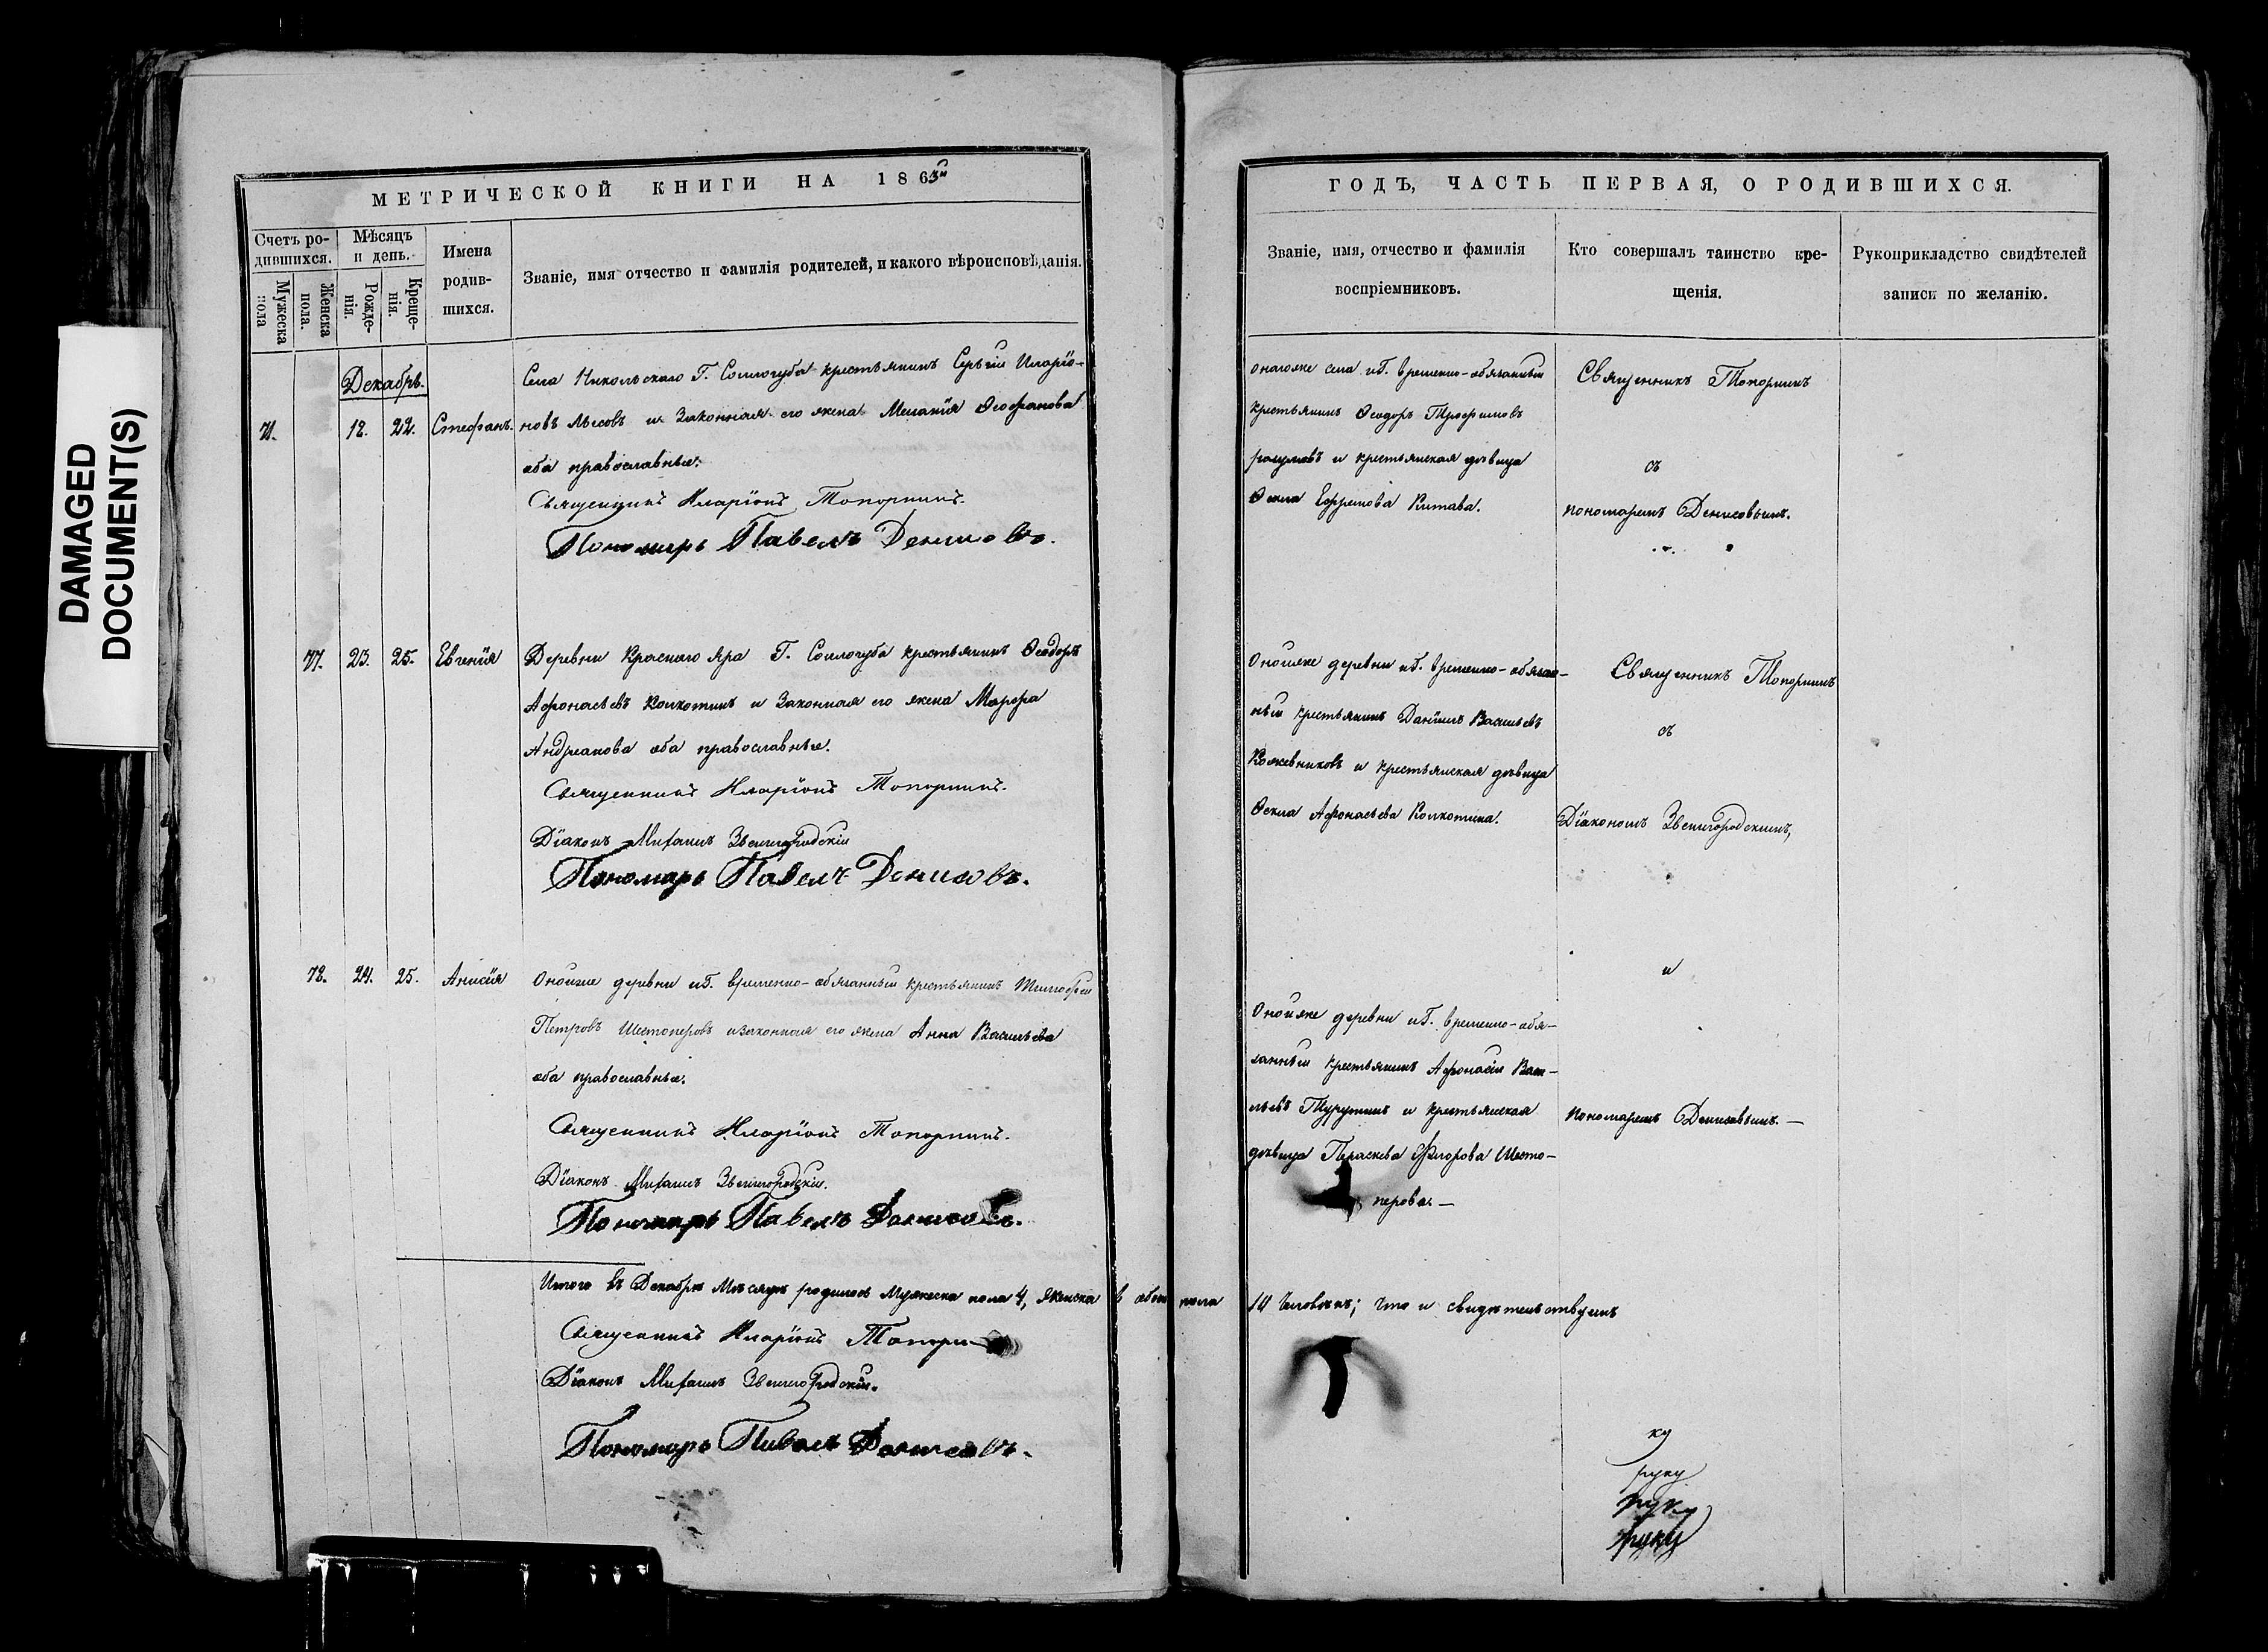 DAMAGED
DOCUMENT(S)
МЕТРИЧЕСКОЙ КНИГИ НА 1863й
Счетъ ро-
дившихся.
Мужеска
пола
Женска
пола.
Мѣсяцъ
и день.
Рожде-
нія.
Креще-
нія.
Имена
родив-
шихся.
Званіе, имя отчество и фамилія родителей, и какого вѣроисповѣданія.
Декабрь.
71. 12. 22. Стефанъ.
Села Никольскаго Г. Соллогуба крестьянинъ Сергѣй Иларіо-
новъ и законная его жена Меланія Ѳеофанова
оба православные.
Священникъ Иларіонъ Топорнинъ.
Пономарь Павелъ Денисовъ.
77. 23. 25. Евгенія
Деревни Краснаго Яра Г. Соллогуба крестьянинъ Ѳеодоръ
Афонасьевъ Колкотинъ и законная его жена Марфа
Андреанова оба православные.
Священникъ Иларіонъ Топорнинъ.
Діаконъ Михаилъ Звенигородскій
Пономарь Павелъ Денисовъ.
78. 24. 25. Анисія
Оной же деревни и Г. временно-обязанный крестьянинъ Тимофей
Петровъ Шестоперовъ и законная его жена Анна Васильева
оба православные.
Священникъ Иларіонъ Топорнинъ.
Діаконъ Михаилъ Звенигородскій.
Пономарь Павелъ Денисовъ.
Итого въ Декабрѣ Мѣсяцѣ родилось Мужеска пола 4, Женска обоего пола
Священникъ Иларіонъ
Діаконъ Михаилъ Звенигородскій.
Пономарь Павелъ Денисовъ.
ГОДЪ, ЧАСТЬ ПЕРВАЯ, О РОДИВШИХСЯ.
Званіе, имя, отчество и фамилія
воспріемниковъ.
Кто совершалъ таинство кре-
щенія.
Рукоприкладство свидѣтелей
записи по желанію.
онаго же села и Г. временно-обязанный
крестьянинъ Ѳеодоръ Трофимовъ
и крестьянская дѣвица
Ѳекла Ефремова
Священникъ Топорнинъ
съ
пономаремъ Денисовымъ.
Оной же деревни и Г. временно-обязан-
ный крестьянинъ Даніилъ Васильевъ
Кожевниковъ и крестьянская дѣвица
Ѳекла Афонасьева Колкотина.
Священникъ Топорнинъ
съ
Діакономъ Звенигородскимъ,
и
пономаремъ Денисовымъ. —
Оной же деревни и Г. временно-обя-
занный крестьянинъ Афонасій Васи-
льевъ и крестьянская
дѣвица Параскева Шесто-
перова. —
Человѣкъ; что и свидѣтельствуемъ
ку
руку
руку
руку